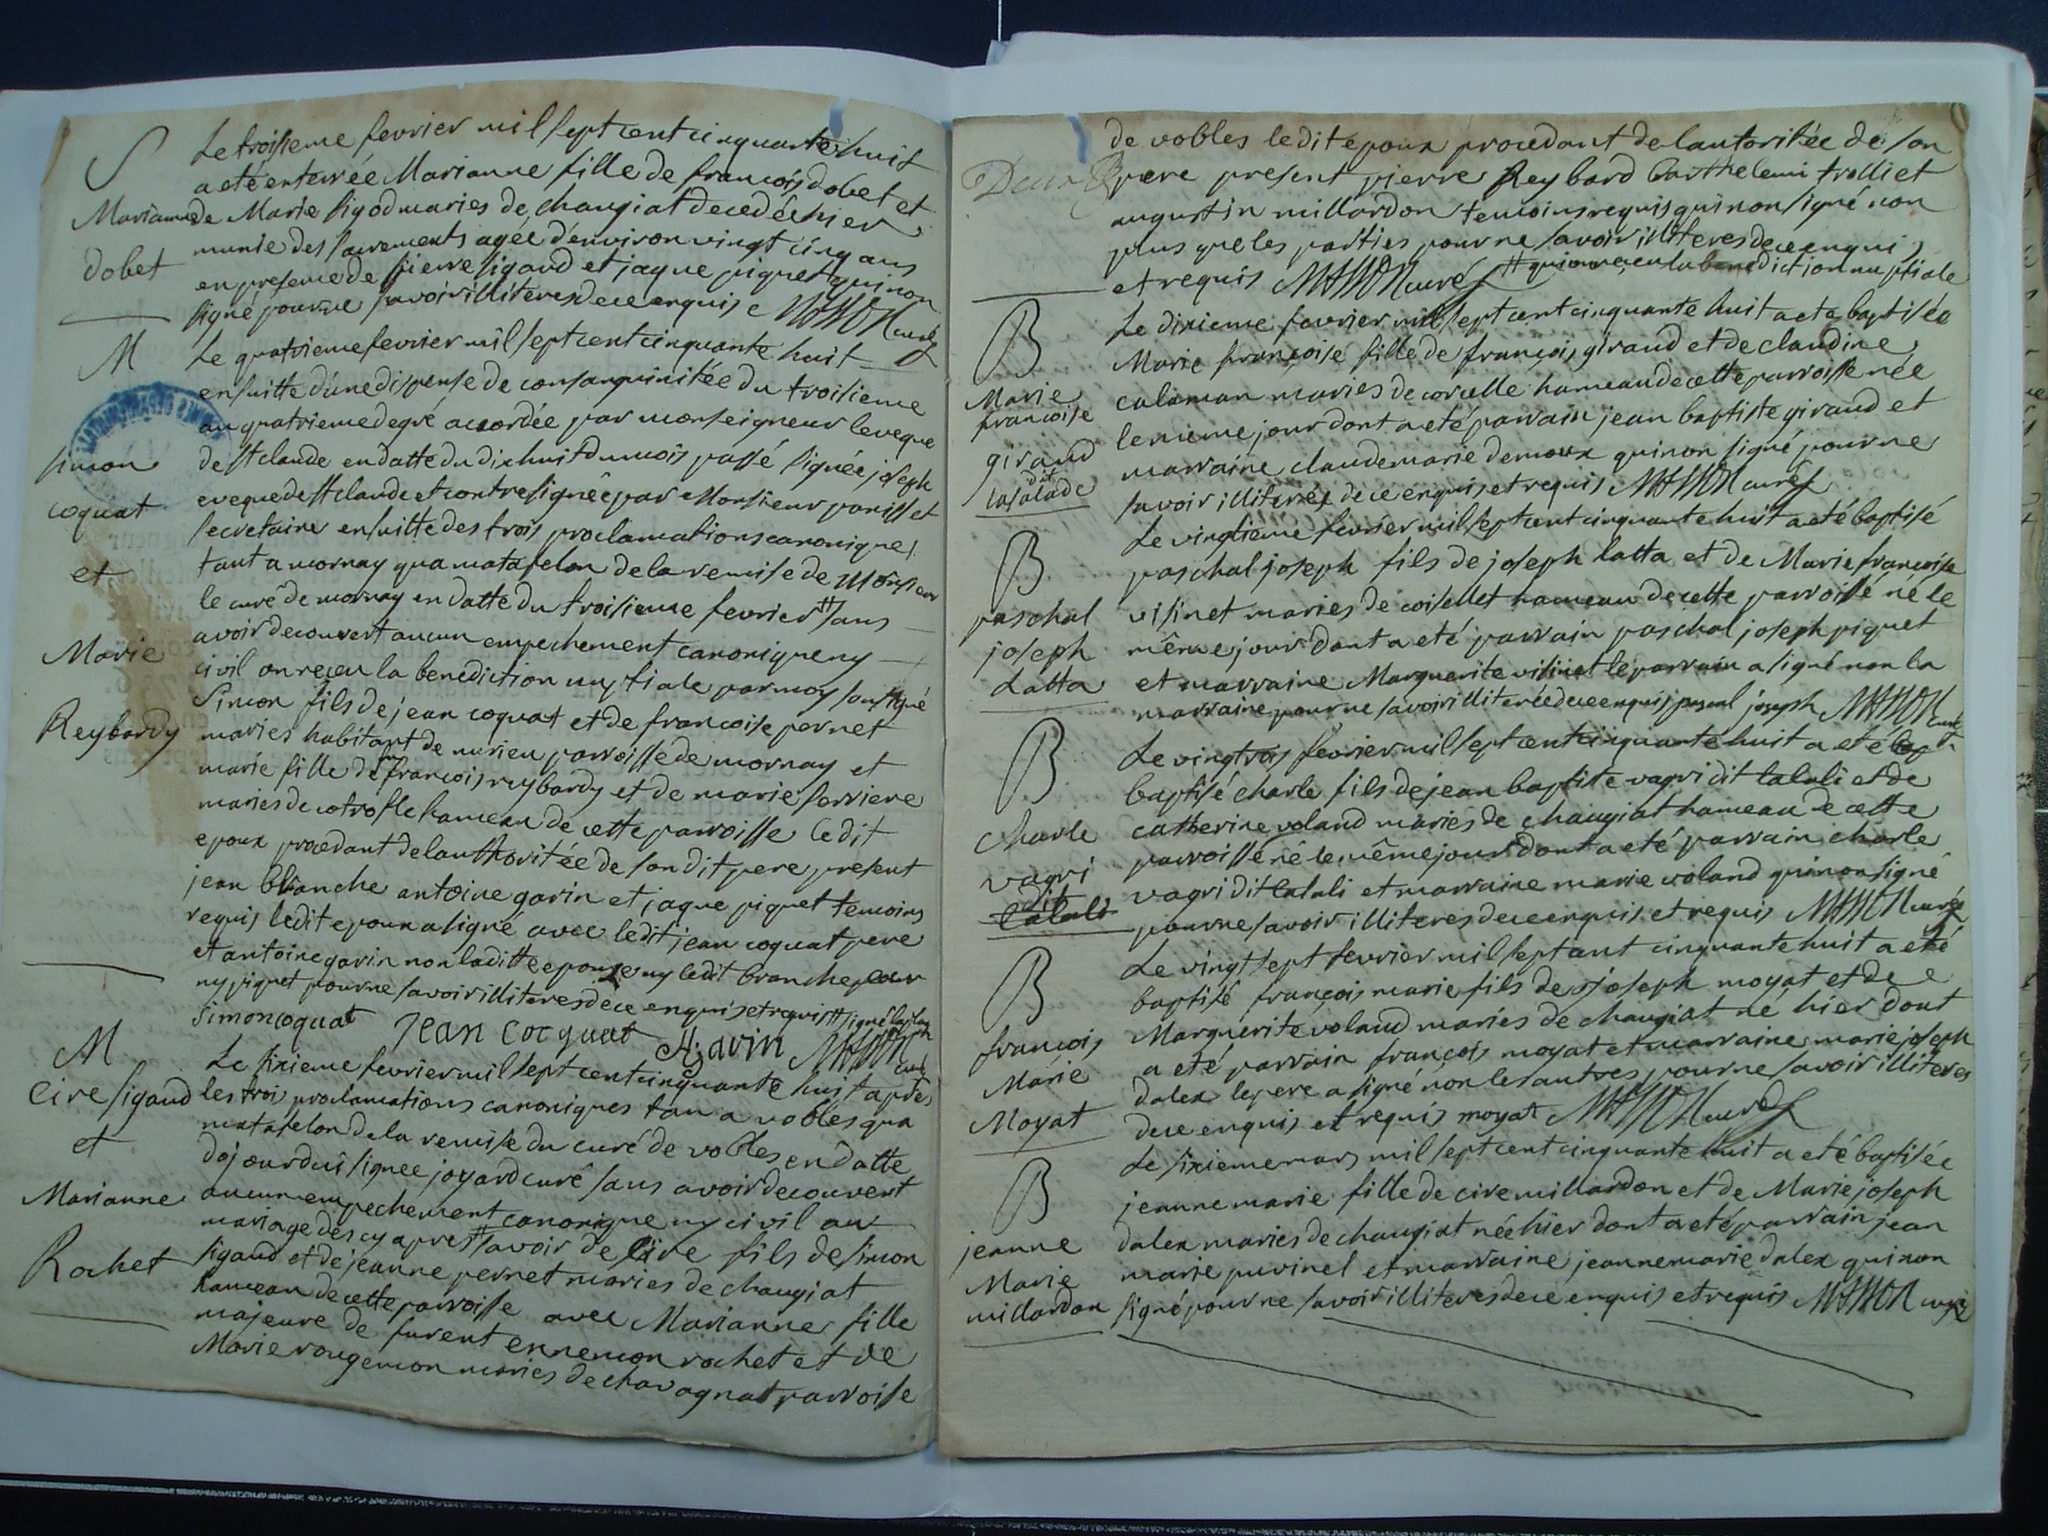 S
Le troisieme fevrier mil sept cent cinquante huit
a eté enterrée Marianne fille de francois dobet et
Marianne
de Marie sigod maries de changiat decedée hier
munie des sacrements agée d'environ vingt cinq ans
dobet
en presence de pierre sigaud et jaque piquet qui non
signé pour ne savoir illiteres de ce enquis
M
Le quatrieme fevrier mil sept cent cinquante huit
ensuitte d'une dispense de consanguinitée du troisieme
au quatrieme degré accordée par monseigneur leveque
simon
de St claude en datte du dixhuit du mois passé signée joseph
eveque de St claude et contresignée par Monsieur panisset
coquat
secretaire ensuitte des trois proclamations canoniques
et
tant a mornay qua matafelon de la remise de Monsieur
le curé de mornay en datte du troisieme fevrier # sans
avoir decouvert aucun empechement canonique ny
Marie
civil on recu la benediction nuptiale par moy soussigné
Simon fils de jean coquat et de francoise pernet
Reybardy
maries habitant de nurieu parroisse de mornay et
marie fille de francois reybardy et de marie ferriere
maries de cotrofle hameau de cette parroisse ledit
epoux procedant de lauthoritée de son dit pere present
jean blanche antoine gavin et jaque piquet temoins
requis ledit epoux a signé avec ledit jean coquat pere
et antoine gavin non laditte epouse ny ledit branche
ny piquet pour ne savoir illiteres de ce enquis et requis # signé
simon coquat jean cocquat A gavin
M
Le sixieme fevrier mil sept cent cinquante huit apres
Cire sigaud
les trois proclamations canoniques tan a vobles qua
matafelon de la remise du curé de vobles en datte
et
dojourduî signee joyard curé sans avoir decouvert
Marianne
aucun empechement canonique ny civil au
mariage des cy apres # savoir de Cire fils de simon
Rochet
sigaud et de jeanne pernet maries de changiat
hameau de cette parroisse avec Marianne fille
majeure de furent ennemon rochet et de
Marie rougemon maries de chavagnat parroisse
de vobles ledit epoux procedant de lautoritée de son
pere present pierre Reybard barthelemi trolliet
augustin millardon temoins requis qui non signé non
plus que les parties pour ne savoir illiteres de ce enquis
et requis curé # qui on reçu la benediction nuptiale
B
Le dixieme fevrier mil sept cent cinquante huit a ete baptisée
Marie françoise fille de françois giraud et de claudine
Marie
francoise
calaman maries de corcelle hameau de cette parroisse née
giraud
le meme jour dont a eté parrain jean baptiste giraud et
dit
lasalade
marraine claudemarie demoux qui non signé pour ne
savoir illiteres de ce enquis et requis curé
B
Le vingtieme fevrier mil sept cent cinquante huit a eté baptisé
paschal joseph fils de joseph latta et de Marie françoise
paschal
visinet maries de coiselet hameau de cette parroisse né le
joseph
même jour dont a eté parrain paschal joseph piquet
Latta
et marraine Marguerite visinet le parrain a signé non la
marraine pour ne savoir illiterée de ce enquis pascal joseph curé
B
Le vingtrois fevrier mil sept cent cinquante huit a eté bap
baptisé charle fils de jean baptiste vagri dit lalali et de
Charle
catherine voland maries de changiat hameau de cette
parroisse né le même jour dont a eté parrain charle
vagri
dit
lalali
vagri dit lalali et marraine marie voland qui non signé
pour ne savoir illiteres de ce enquis et requis curé
B
Le vingt sept fevrier mil sept cent cinquante huit a eté
baptisé françois marie fils de joseph moyat et de
francois
Marguerite voland maries de changiat né hier dont
Marie
a eté parrain françois moyat et marraine marie joseph
Moyat
dalex le pere a signé non les autres pour ne savoir illiteres
de ce enquis et requis moyat curé
B
Le sixieme mars mil sept cent cinquante huit a eté baptisée
jeanne marie fille de cire millardon et de Marie joseph
jeanne
dalex maries de changiat née hier dont a eté parrain jean
Marie
marie puvinel et marraine jeanne marie dalex qui non
millardon
signé pour ne savoir illiteres de ce enquis et requis curé